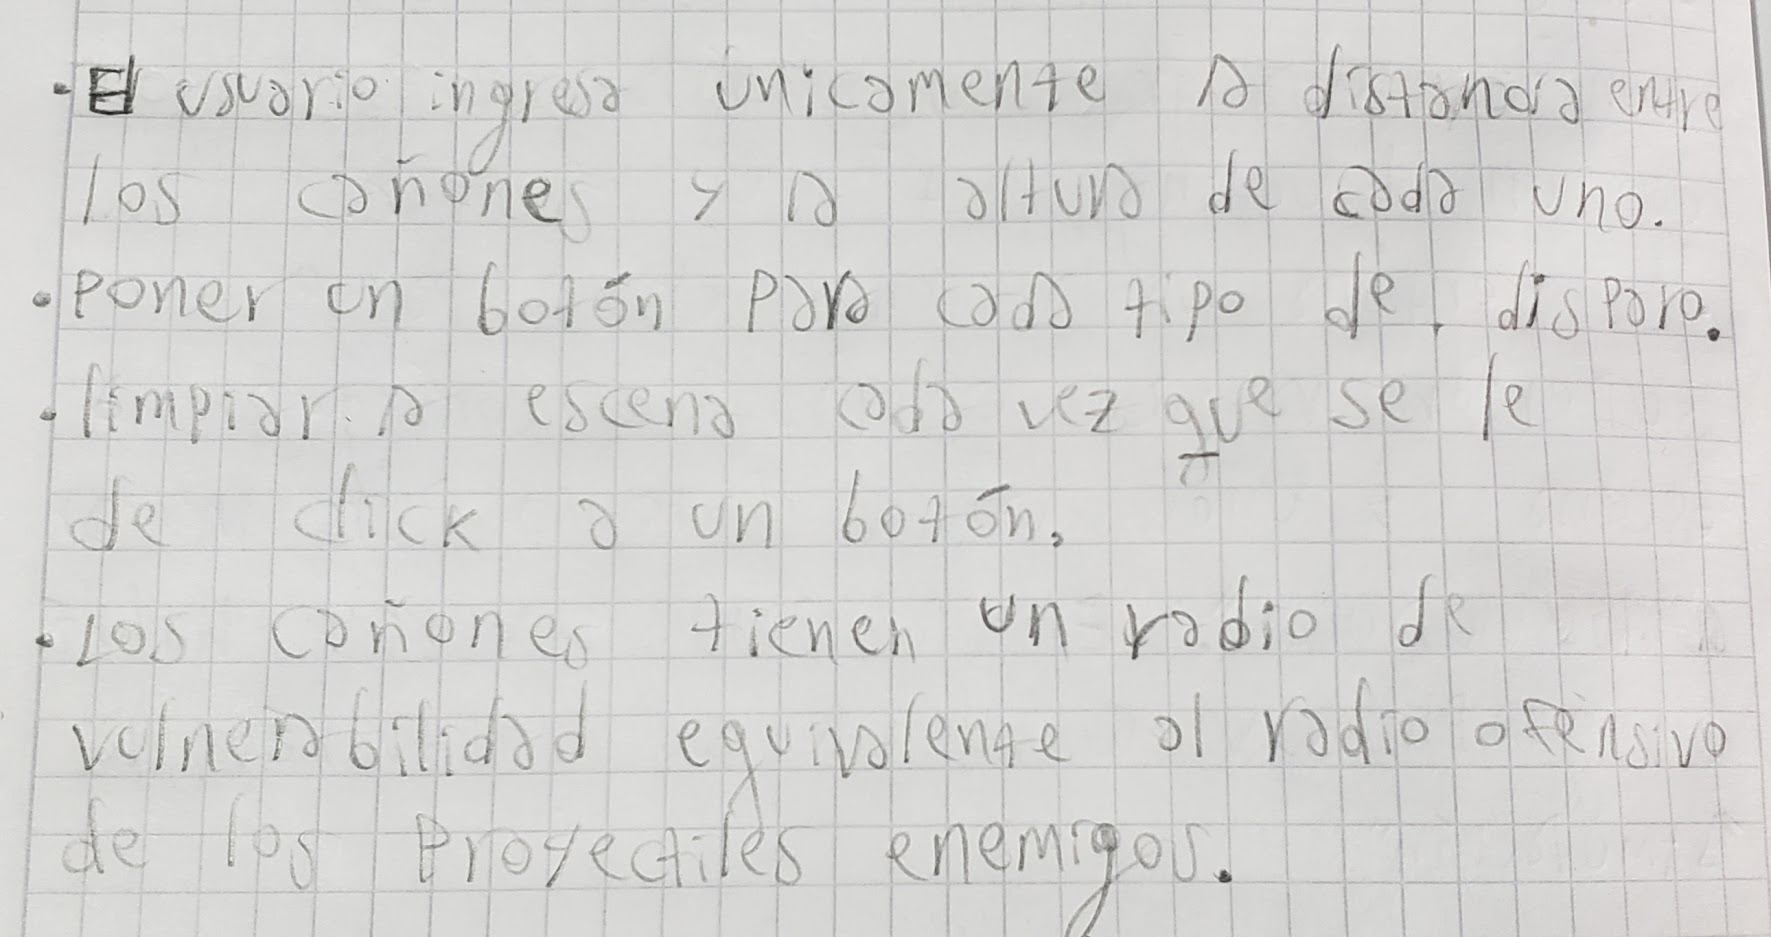 · El usuario ingresa únicamente la distancia entre
los cañones y la altura de cada uno.
· Poner un botón para cada tipo de disparo.
· limpiar la escena cada vez que se le
de click a un botón.
· Los cañones tienen un radio de
vulnerabilidad equivalente al radio ofensivo
de los proyectiles enemigos.